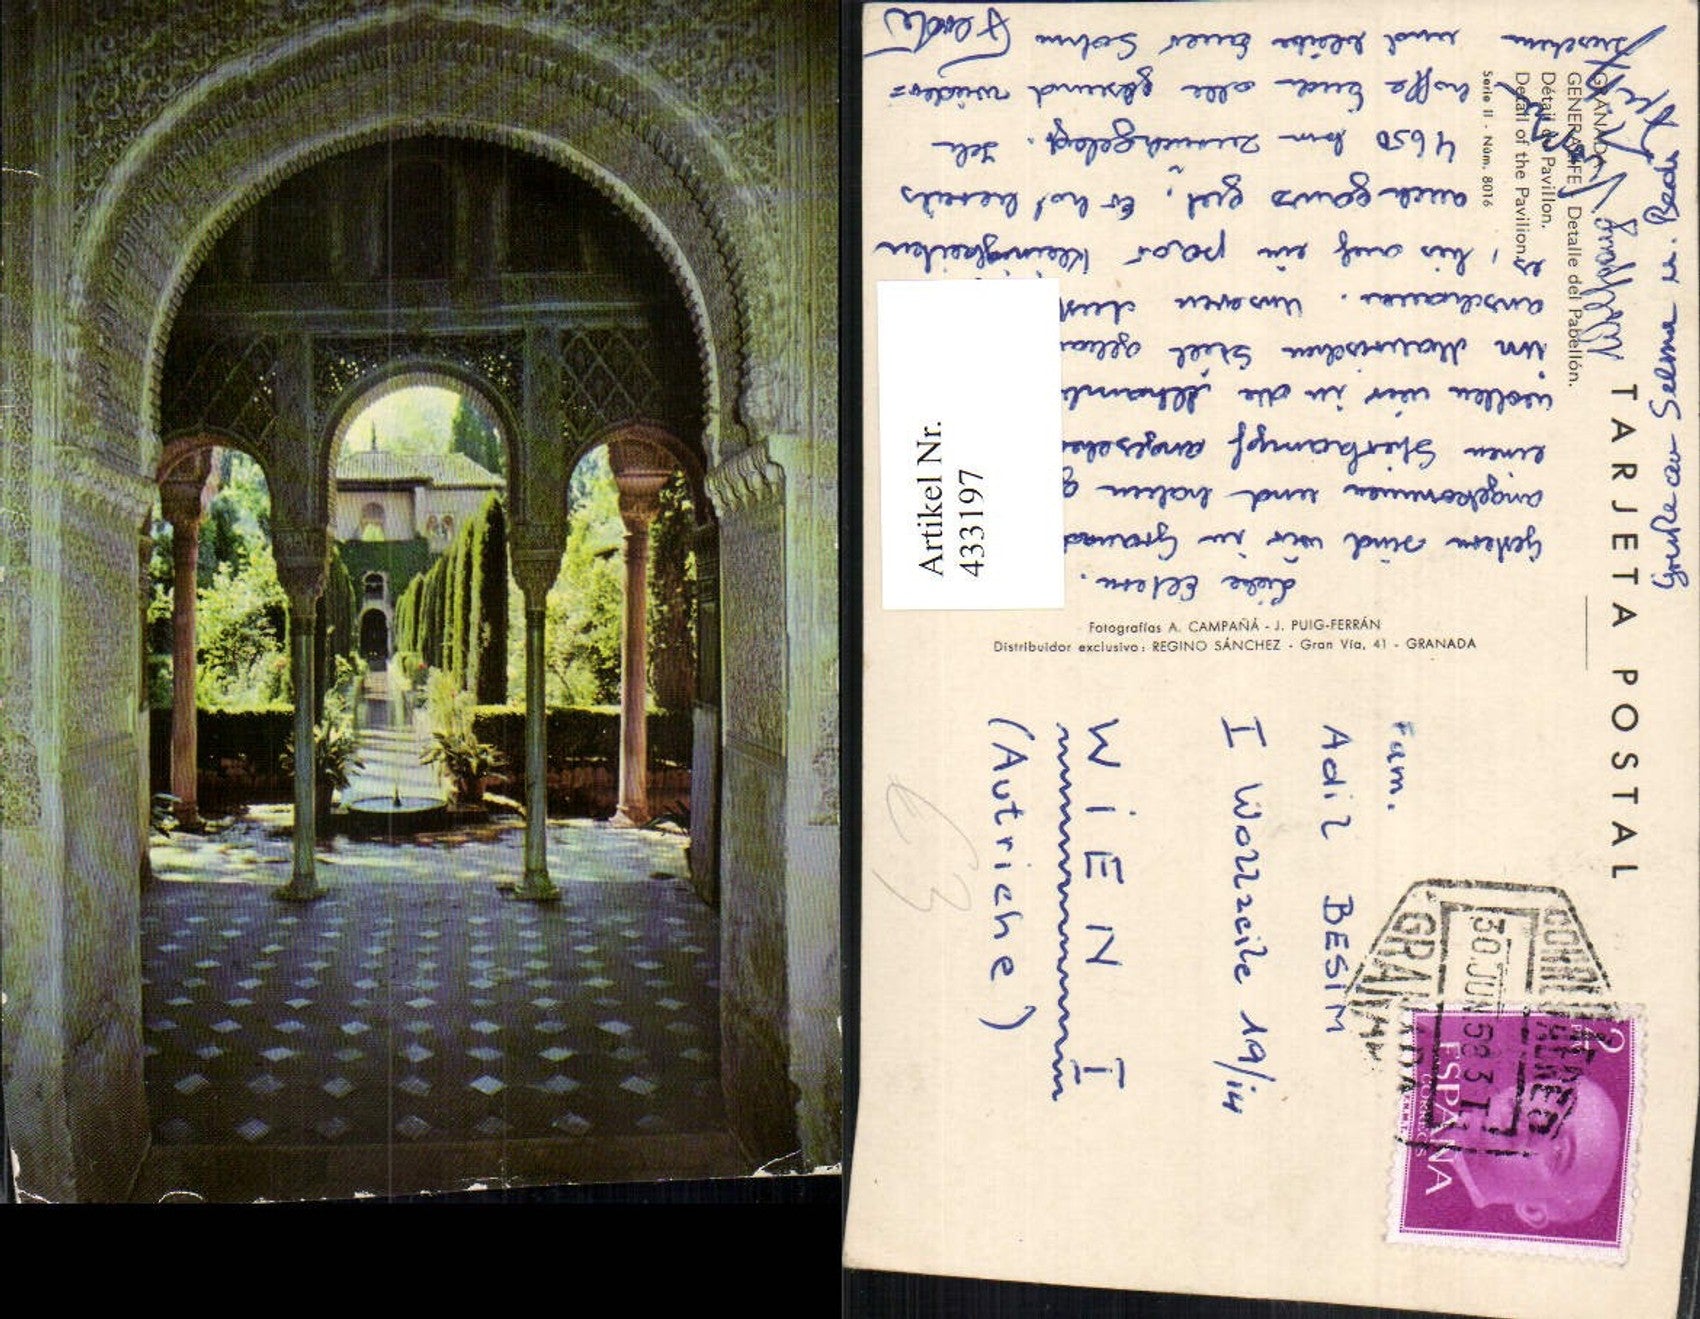 TARJETA POSTAL
GRANADA
GENERALIFE Detalle del Pabellón.
Détail Pavillon.
Detail of the Pavilion.
Serie II - Núm. 8016
Fotografías A. CAMPAÑÁ - J. PUIG-FERRÁN
Distribuidor exclusivo: REGINO SÁNCHEZ - Gran Vía, 41 - GRANADA
Liebe Eltern.
Gestern sind wir in Granad
angekommen und haben
einen Stierkampf angesehe
wollen wir in die Alhamb
im Maurischen Stiel
anschauen. Unseren
es, bis auf ein paar Kleinigkeiten
auch ganz gut. Er hat bereits
4650 km zurückgelegt. Ich
hoffe Euch alle gesund wieder=
zusehen und bleibe Euer Sohn
Fam.
Adil BESIM
I Wollzeile 19/14
WIEN I
(Autriche)
Artikel Nr.
433197
GRANADA
30.JUN 58.3T
CORREO AEREO
2
ESPAÑA
CORREOS
€3